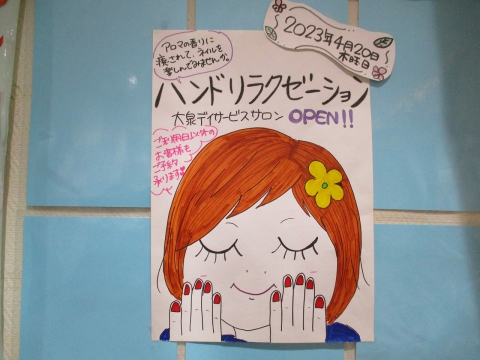 アロマの香りに
癒されて、ネイルを
楽しんでみませんか。
～2023年4月20日～
木曜日
ハンドリラクゼーション
大泉デイサービスサロン OPEN!!
ご利用日以外の
お客様も
ご予約
承ります